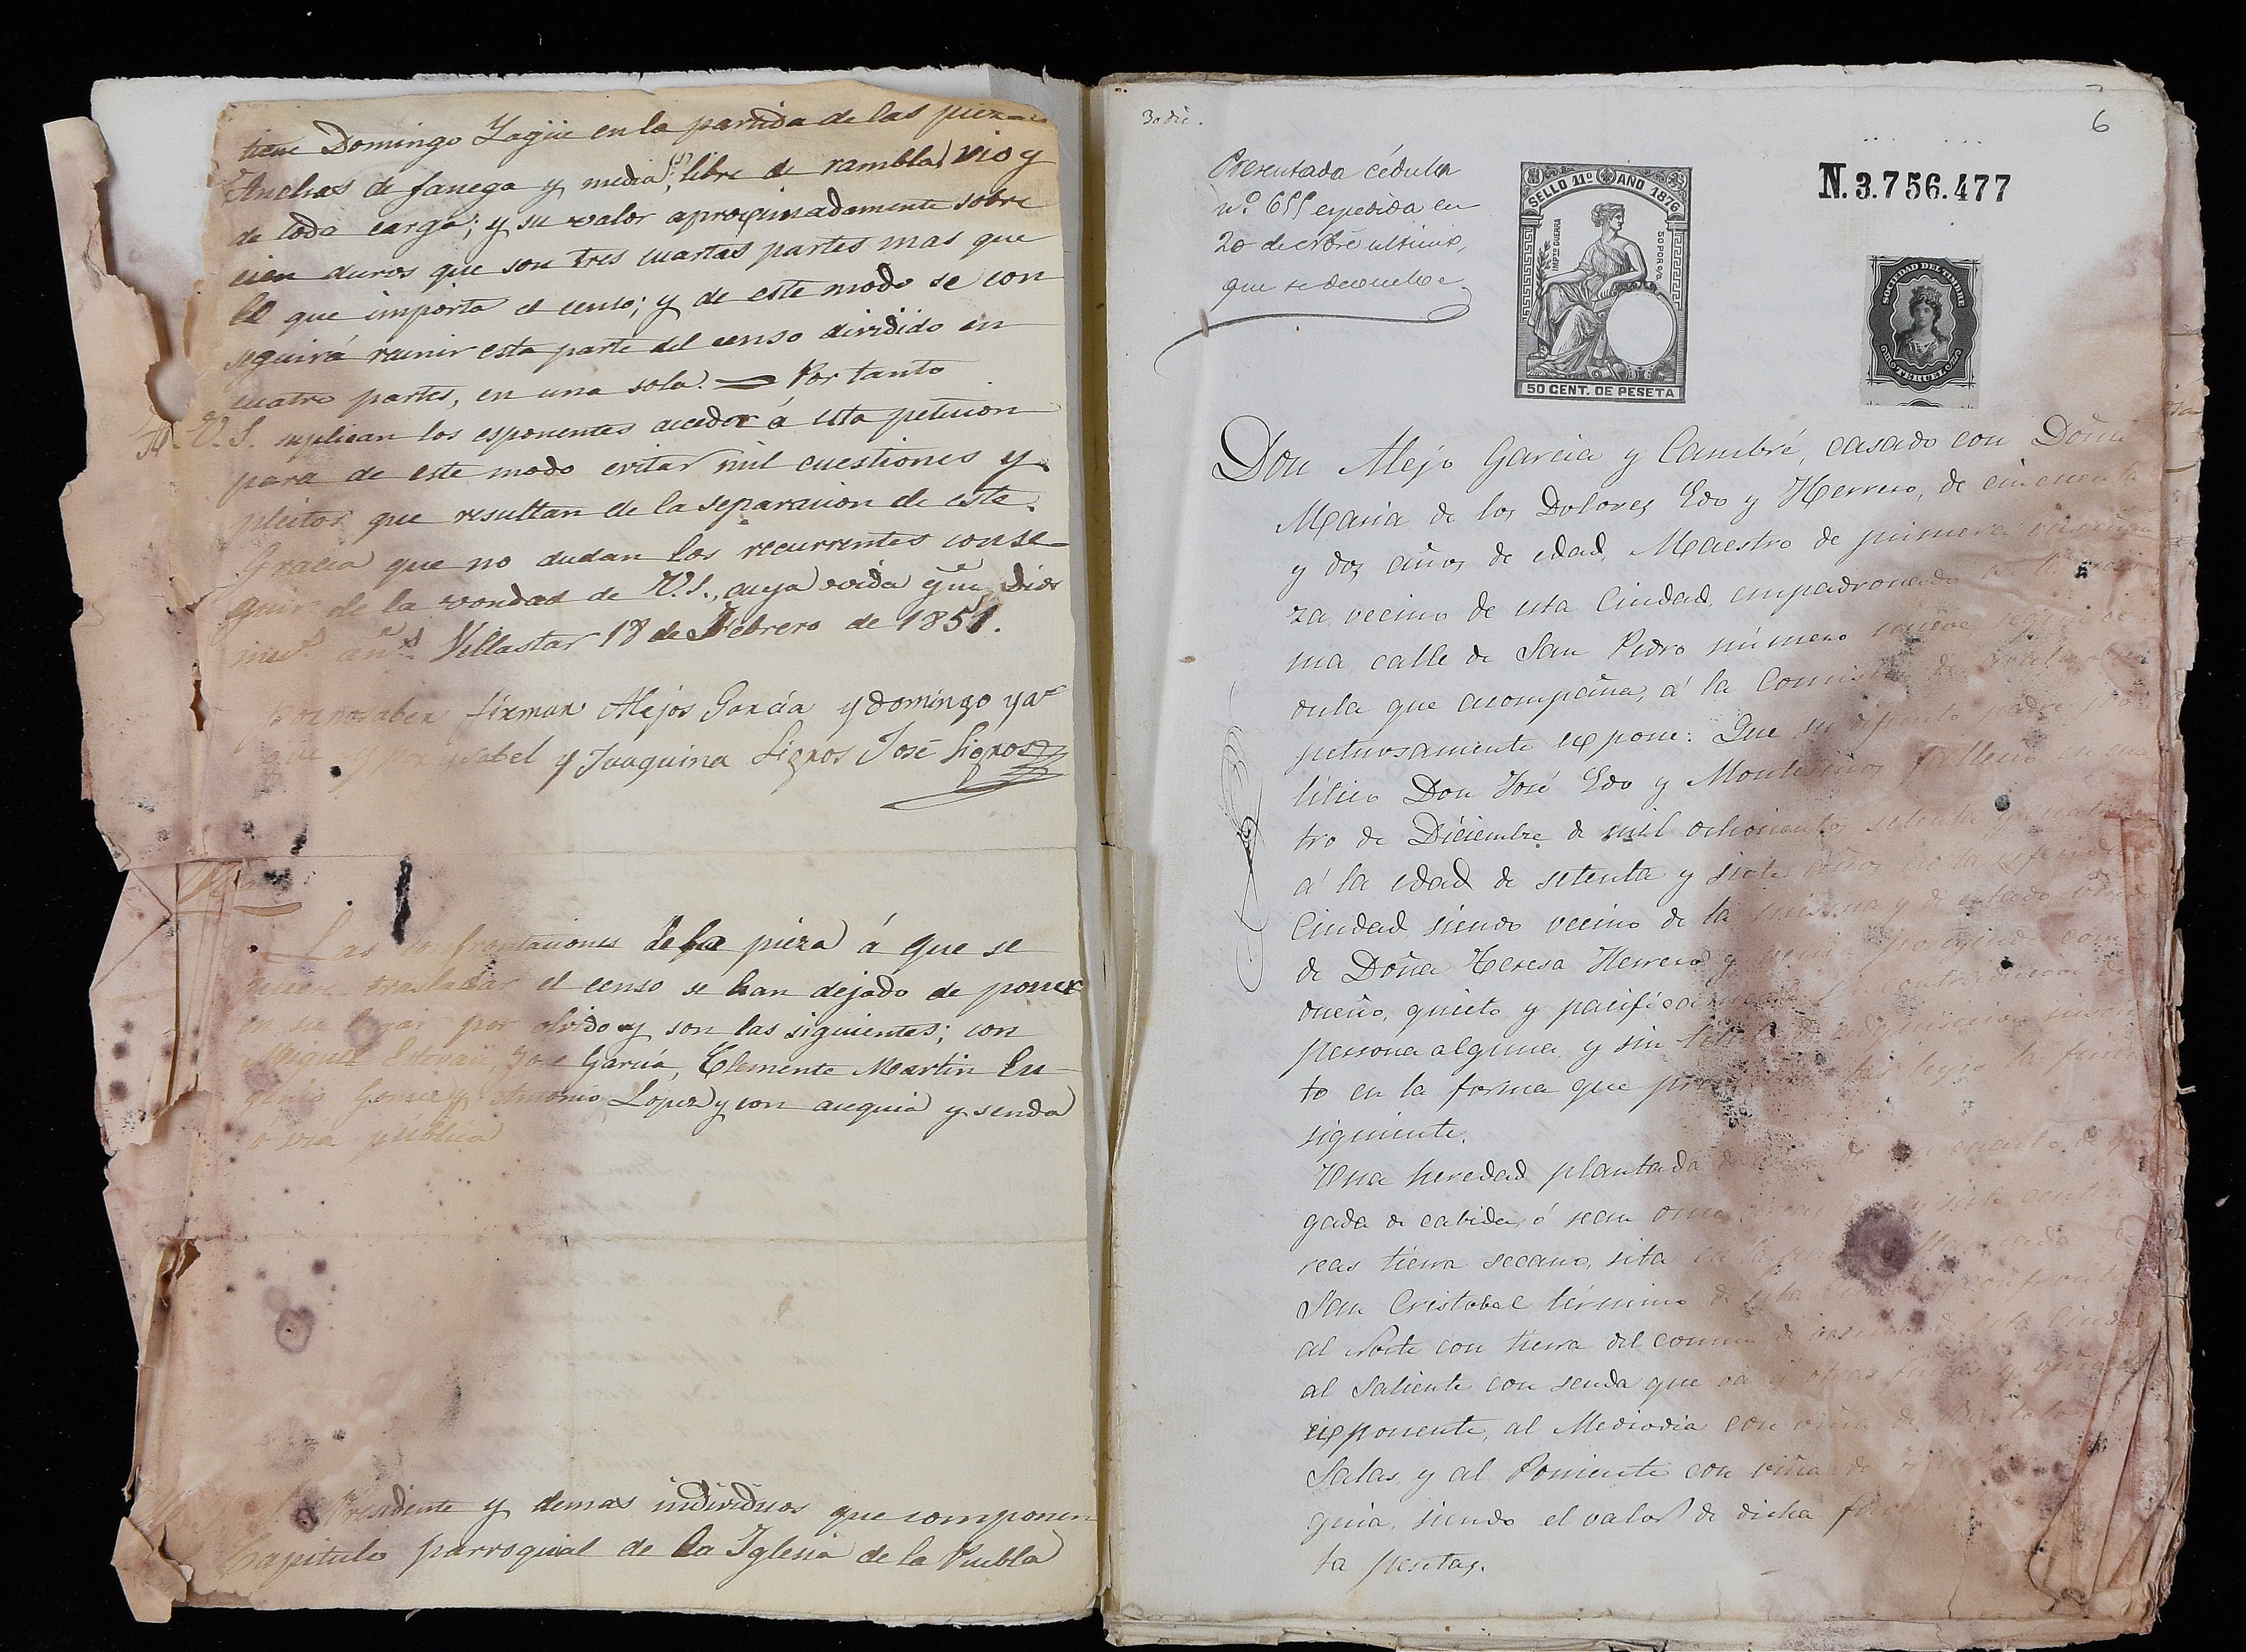 tiene Domingo Yagüe en la partida de las piezas
Anchas de fanega y media, libre de rambla, rio y
de toda carga; y su valor aproximadamente sobre
cien duros que son tres cuartas partes mas que
lo que importa el censo; y de este modo se con
seguirá reunir esta parte del censo dividido en
cuatro partes, en una sola. = Por tanto
A V.S. suplican los esponentes acceda á esta peticion
para de este modo evitar mil cuestiones y
pleitos que resultan de la separacion de este.
Gracia que no dudan los recurrentes conse-
guir de la vondad de V.S., cuya vida gue Dios
mus. añs. Villastar 18 de Febrero de 1851.
por no saber firmar Alejos García y domingo yа
güe y por ysabel y Juaquina Lignos José Lignos
Las confrontaciones de la pieza á que se
quiere trasladar el censo se han dejado de poner
en su lugar por olvido y son las siguientes; con
Miguel Estevan, José García, Clemente Martin Eu-
genio Gomez y Antonio Lopez y con acequia y senda
ó via publica
S. Presidente y demas individuos que componen
Capitulo parroquial de la Iglesia de la Puebla
30 dic.
6
Presentada cédula
nº 655 expedida en
20 de ultimo,
que se devuelve.
SELLO 11º AÑO 1876
IMPTO GUERRA
50 POR %
50 CENT. DE PESETA
N. 3.756.477
SOCIEDAD DEL TIMBRE
TERUEL
Don Alejo Garcia y Cambré, casado con Doña
Maria de los Dolores Edo y Herrero, de cincuenta
y dos años de edad, Maestro de primera enseñan
za, vecino de esta Ciudad, empadronado en la mis
ma calle de San Pedro número nueve segun cé
dula que acompaña, á la Comision de
petuosamente expone: Que su difunto padre po
lítico Don José Edo y Montesinos falleció en cua
tro de Diciembre de mil ochocientos setenta y cuatro
á la edad de setenta y siete años en la referida
Ciudad, siendo vecino de la misma y de estado viudo
de Doña Teresa Herrero y venia poseyendo como
dueño, quieta y pacíficamente sin contradiccion de
persona alguna y sin titulo de adquisicion inscri
to en la forma que previenen las leyes la finca
siguiente.
Una heredad plantada de viña de un cuarto de yu
gada de cabida, ó sean once areas diez y siete centia
reas tierra secano, sita en la partida llamada de
San Cristobal término de esta Ciudad y confronta
al Norte con tierra del comun de vecinos de esta Ciudad
al Saliente con senda que va á otras fincas y viña
exponente, al Mediodia con viña de
Salas, y al Poniente con viña de
guia, siendo el valor de dicha finca
ta pesetas.